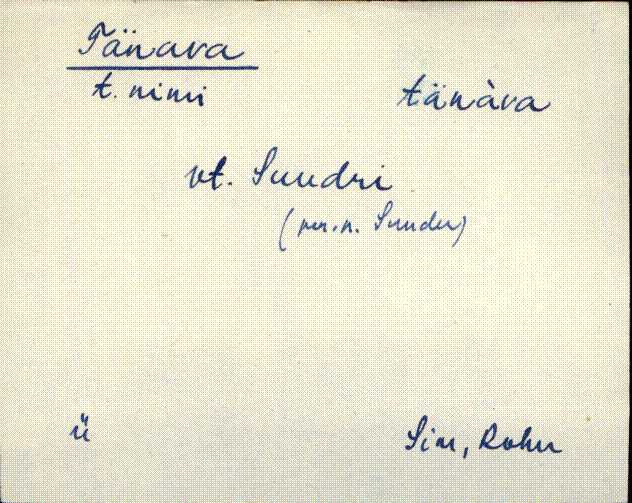 Tänava
t. nimi tänàva
vt. Suudri
(per.n. Suuder)
ü Sim, Rohu